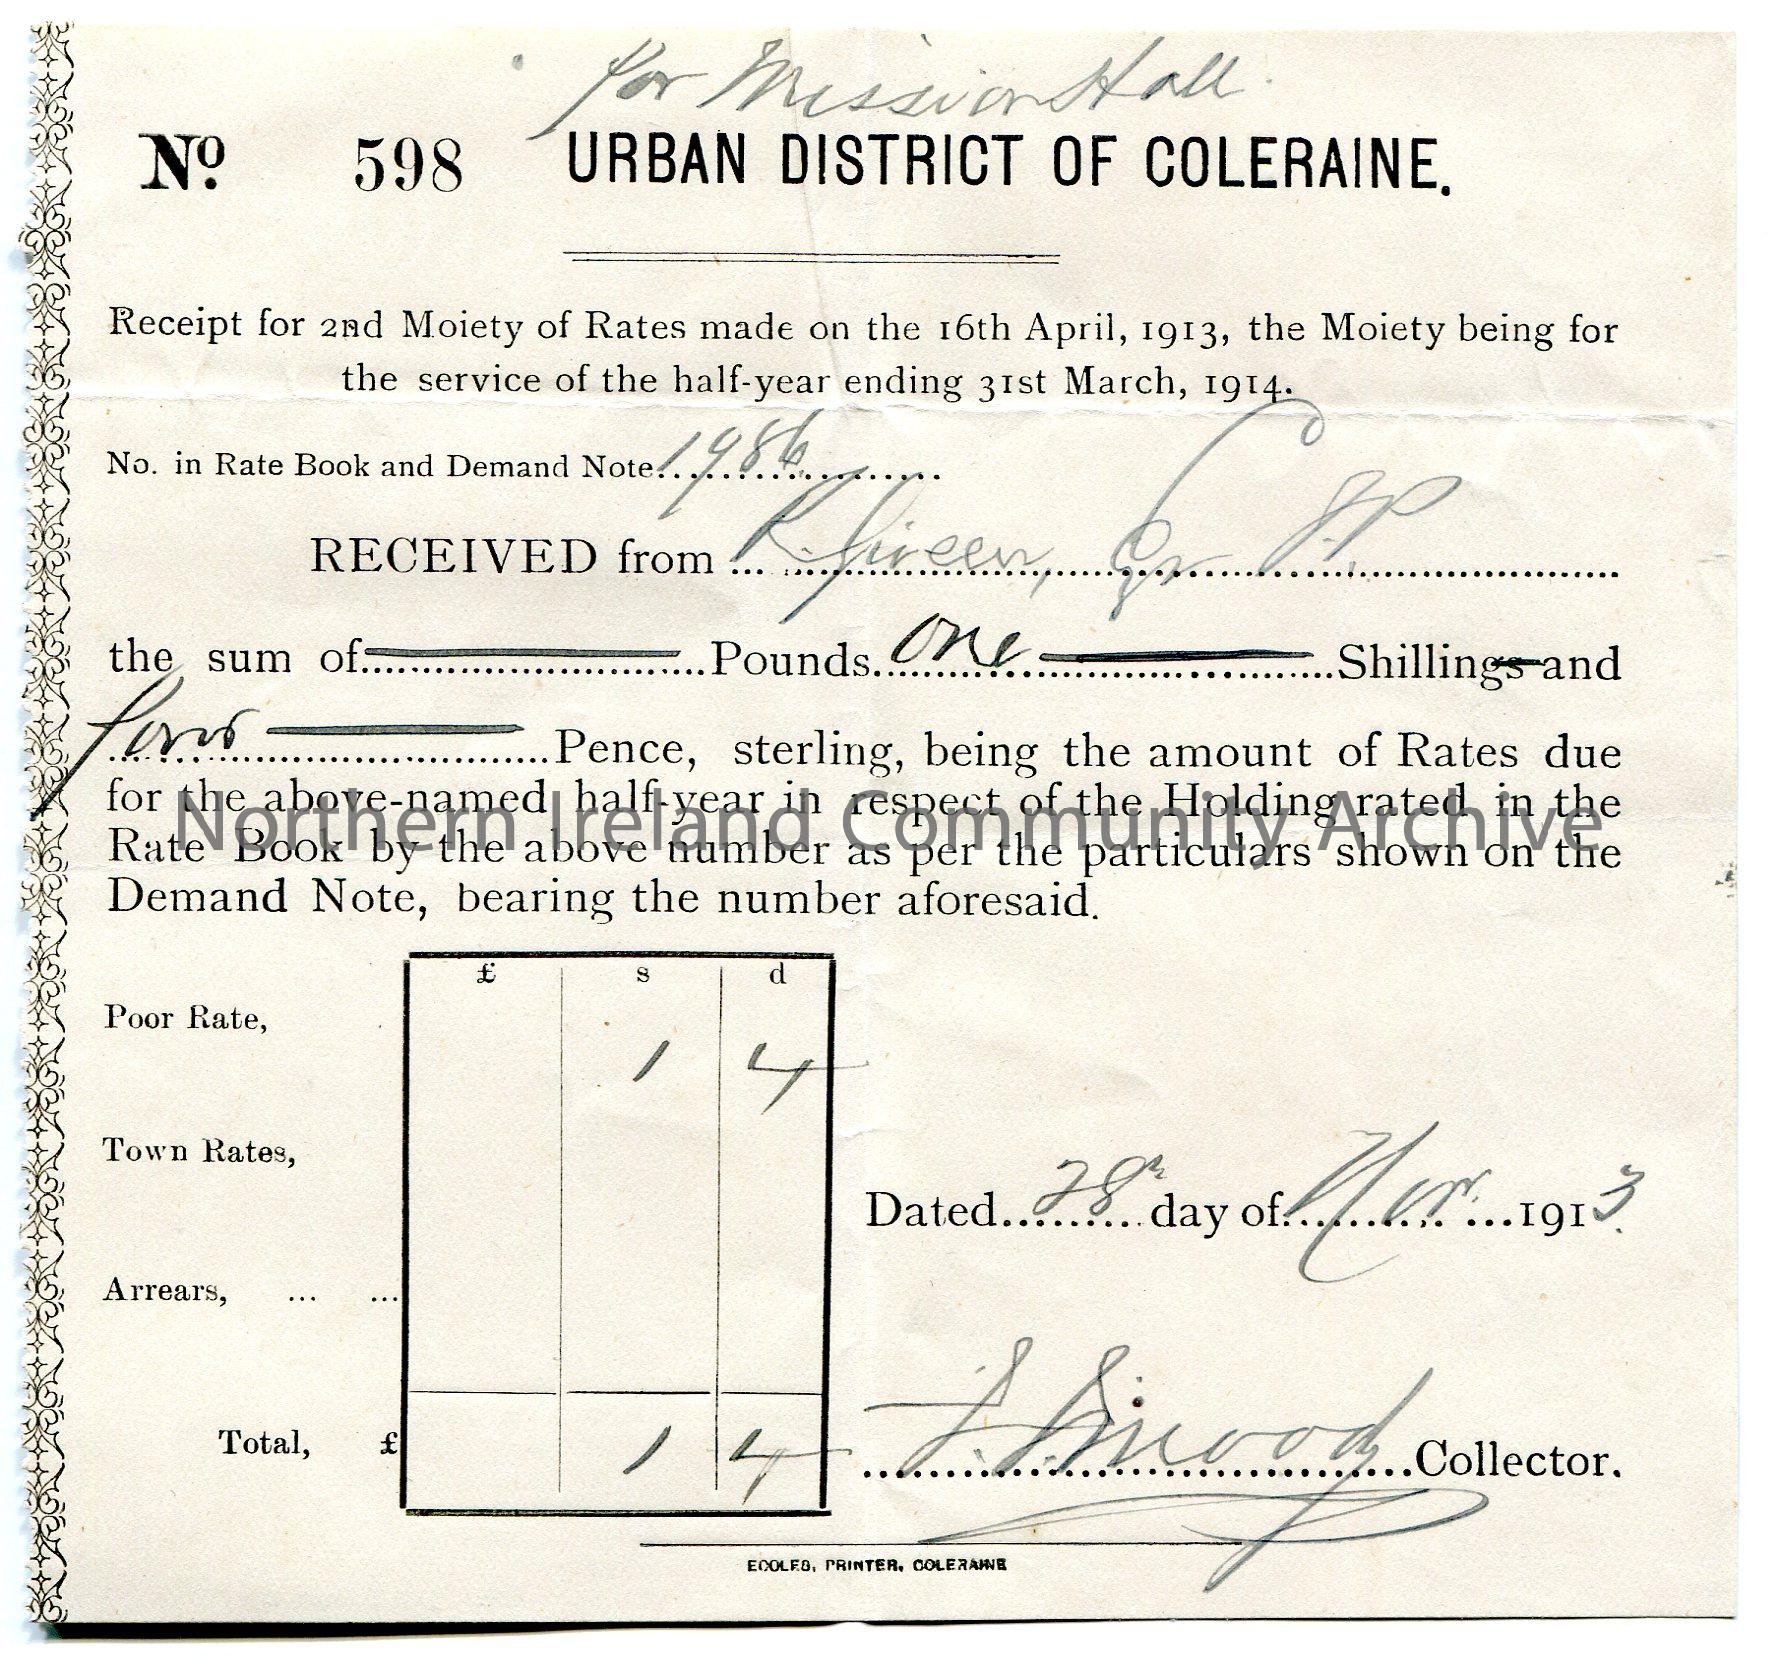 for Mission Hall.
No. 598 URBAN DISTRICT OF COLERAINE.
Receipt for 2nd Moiety of Rates made on the 16th April, 1913, the Moiety being for
the service of the half-year ending 31st March, 1914.
No. in Rate Book and Demand Note 1986
RECEIVED from R. Given, Esq. J.P.
the sum of Pounds one Shillings and
four Pence, sterling, being the amount of Rates due
for the above-named half-year in respect of the Holding rated in the
Northern Ireland Community Archive
Rate Book by the above number as per the particulars shown on the
Demand Note, bearing the number aforesaid.
£ s d
Poor Rate, 1 4
Town Rates,
Dated 28th day of Nov. 1913.
Arrears, ... ...
Total, £ 1 4 Collector.
ECCLES, PRINTER, COLERAINE